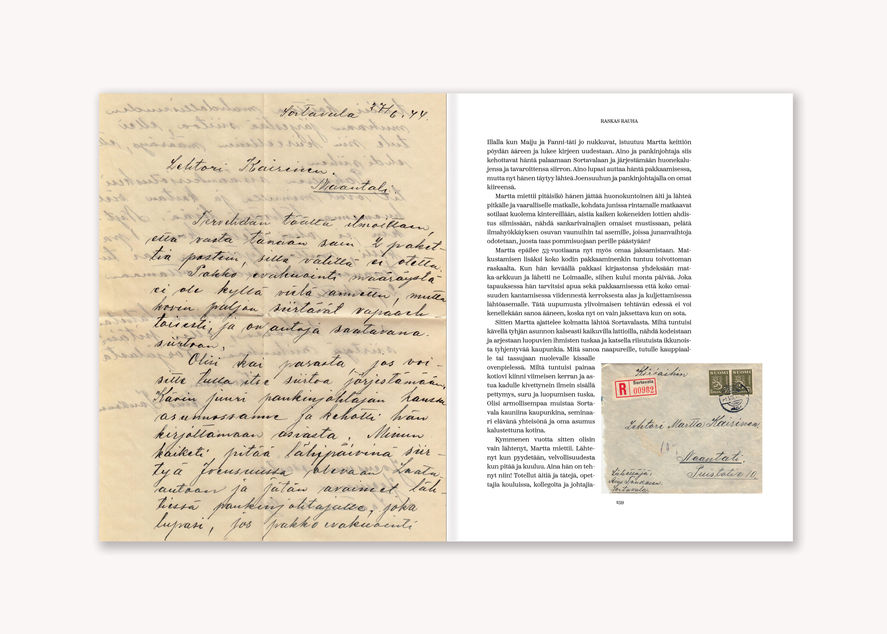 Sortavala 27/6.44.
Lehtori Kairinen.
Naantali.
Tervehdän täältä ilmoittaen,
että vasta tänään sain 2 paket-
tia postiin, sillä välillä ei otettu.
Pakko evakuointi määräystä
ei ole kyllä vielä annettu, mutta
kovin paljon siirtävät vapaaeh-
toisesti, ja on autoja saatavana
siirtoon.
Olisi kai parasta jos voi-
sitte tulla itse siirtoa järjestämään,
Kävin juuri pankinjohtajan kanssa
asunnossanne ja kehotti hän
kirjoittamaan asiasta. Minun
kaiketi pitää lähipäivinä siir-
tyä Joensuussa olevaan
ja jätän avaimet läh-
tiessä pankinjohtajalle, joka
lupasi, jos pakko evakuointi
RASKAS RAUHA
Illalla kun Maiju ja Fanni-täti jo nukkuvat, istuutuu Martta keittiön
pöydän ääreen ja lukee kirjeen uudestaan. Aino ja pankinjohtaja siis
kehottavat häntä palaamaan Sortavalaan ja järjestämään huonekalu-
jensa ja tavaroittensa siirron. Aino lupasi auttaa häntä pakkaamisessa,
mutta nyt hänen täytyy lähteä Joensuuhun ja pankinjohtajalla on omat
kiireensä.
Martta miettii pitäisikö hänen jättää huonokuntoinen äiti ja lähteä
pitkälle ja vaaralliselle matkalle, kohdata junissa rintamalle matkaavat
sotilaat kuolema kintereillään, aistia kaiken kokeneiden lottien ahdis-
tus silmissään, nähdä sankarivainajien omaiset mustissaan, pelätä
ilmahyökkäyksen osuvan vaunuihin tai asemille, joissa junanvaihtoja
odotetaan, juosta taas pommisuojaan perille päästyään!
Martta epäilee 55-vuotiaana nyt myös omaa jaksamistaan. Mat-
kustamisen lisäksi koko kodin pakkaaminenkin tuntuu toivottoman
raskaalta. Kun hän keväällä pakkasi kirjastonsa yhdeksään mat-
ka-arkkuun ja lähetti ne Loimaalle, siihen kului monta päivää. Joka
tapauksessa hän tarvitsisi apua sekä pakkaamisessa että koko omai-
suuden kantamisessa viidennestä kerroksesta alas ja kuljettamisessa
lähtöasemalle. Tätä uupumusta ylivoimaisen tehtävän edessä ei voi
kenellekään sanoa ääneen, koska nyt on vain jaksettava kun on sota.
Sitten Martta ajattelee kolmatta lähtöä Sortavalasta. Miltä tuntuisi
kävellä tyhjän asunnon kalseasti kaikuvilla lattioilla, nähdä kodeistaan
ja arjestaan luopuvien ihmisten tuskaa ja katsella riisutuista ikkunois-
ta tyhjentyvää kaupunkia. Mitä sanoa naapureille, tutulle kauppiaal-
le tai tassujaan nuolevalle kissalle
ovenpielessä. Miltä tuntuisi painaa
kotiovi kiinni viimeisen kerran ja as-
tua kadulle kivettynein ilmein sisällä
pettymys, suru ja luopumisen tuska.
Olisi armollisempaa muistaa Sorta-
vala kauniina kaupunkina, seminaa-
ri elävänä yhteisönä ja oma asumus
kalustettuna kotina.
Kymmenen vuotta sitten olisin
vain lähtenyt, Martta miettii. Lähte-
nyt kun pyydetään, velvollisuudesta
kun pitää ja kuuluu. Aina hän on teh-
nyt niin! Totellut äitiä ja tätejä, opet-
tajia kouluissa, kollegoita ja johtajia-
Kirjattu
R
Sortavala
00982
SUOMI
SUOMI
Lehtori Martta Kairinen.
Naantali.
Puistotie 10.
Lähettäjä:
Sortavala.
159